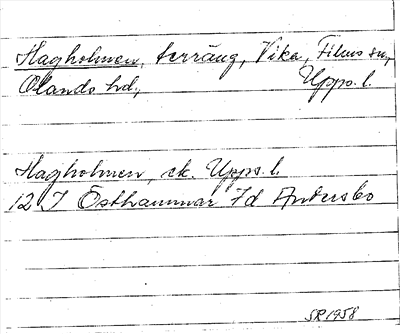 Hagholmen, terräng, Vika, Films sn,
Olands hd, Upps. l.
Hagholmen, ek. Upps. l.
12 I Östhammar 7d Andersbo
SR 1958